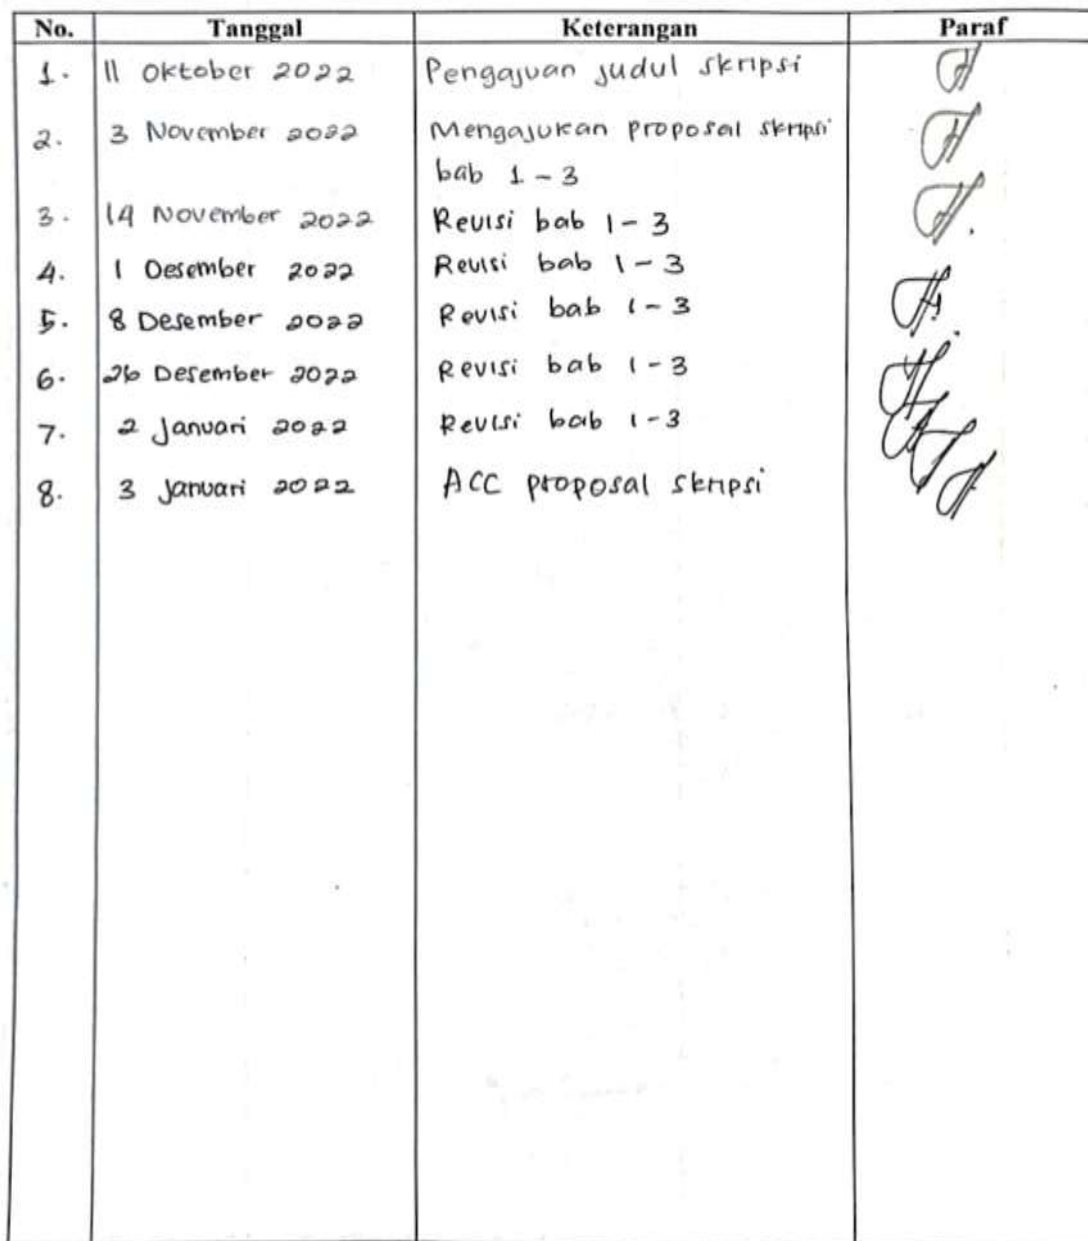 No. Tanggal Keterangan Paraf
1. 11 Oktober 2022 Pengajuan judul skripsi
2. 3 November 2022 Mengajukan proposal skripsi
bab 1 - 3
3. 14 November 2022 Revisi bab 1 - 3
4. 1 Desember 2022 Revisi bab 1 - 3
5. 8 Desember 2022 Revisi bab 1 - 3
6. 26 Desember 2022 Revisi bab 1 - 3
7. 2 Januari 2022 Revisi bab 1 - 3
8. 3 Januari 2022 ACC proposal skripsi